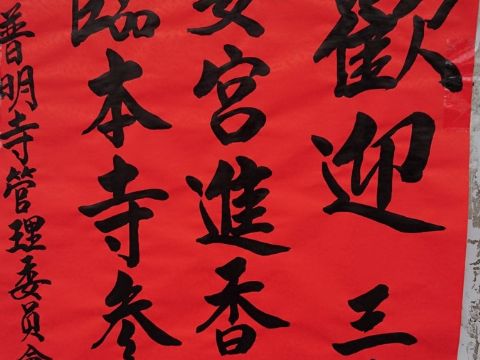 歡迎三
安宮進香
臨本寺參
普明寺管理委員會